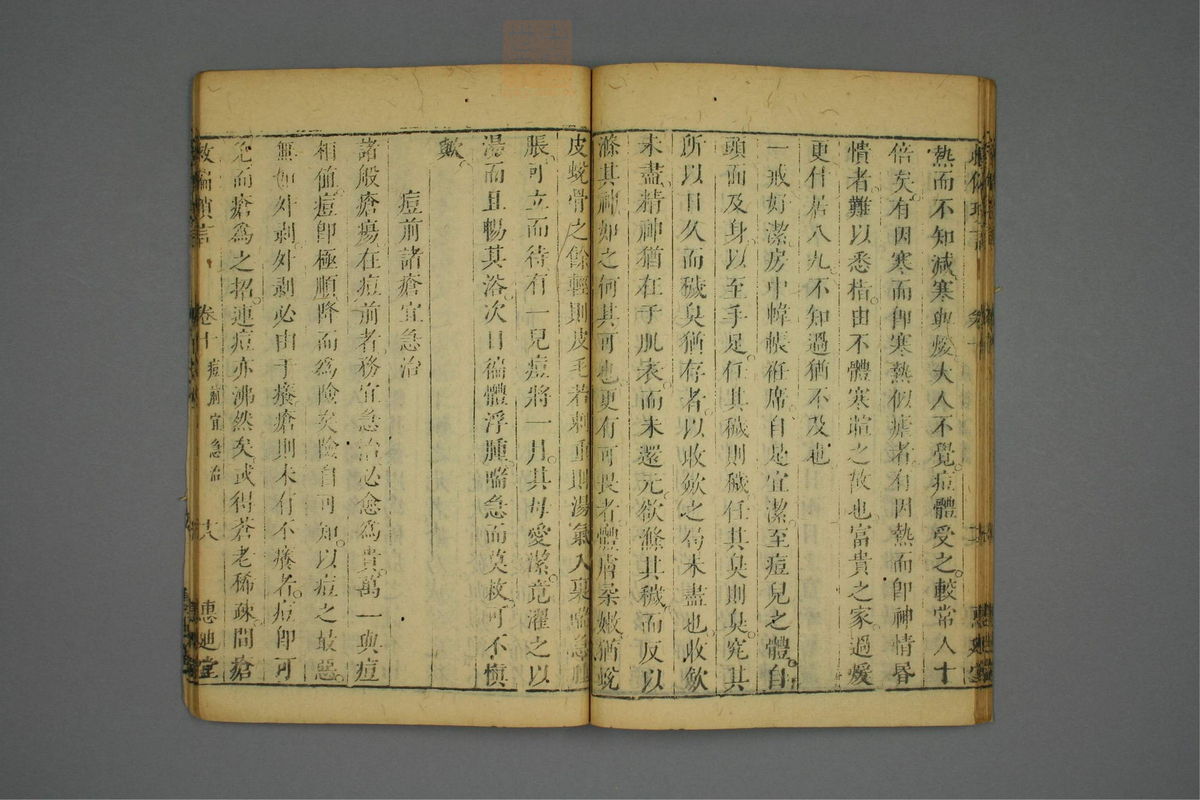 熱而不知減寒與煖大人不覺痘體受之較常人十
倍矣有因寒而卽寒熱似瘧者有因熱而卽神情昏
憒者難以悉指由不體寒暄之故也富貴之家過煖
更什居八九不知過猶不及也
一戒好潔房中幃帳袵席自是宜潔至痘兒之體自
頭面及身以至手足任其穢則穢任其臭則臭究其
所以日久而穢臭猶存者以收歛之局未盡也收歛
未盡精神猶在于肌表而未還元欲滌其穢而反以
滌其神如之何其可也更有可畏者體膚柔嫩猶蛻
皮蛻骨之餘輕則皮毛若刺重則湯氣入裏喘急
脹可立而待有一兒痘將一月其母愛潔竟濯之以
湯而且暢其浴次日徧體浮腫喘急而莫救可不愼
歟
痘前諸瘡宜急治
諸般瘡瘍在痘前者務宜急治必愈爲貴萬一與痘
相値痘卽極順降而爲險矣險自可知以痘之最惡
無如外剥外剥必由于癢瘡則未有不癢者痘卽可
免而瘡爲之招連痘亦沸然矣武得蒼老稀疎間瘡
救偏瑣言 卷十 痘前宜急治 十八 惠迪堂